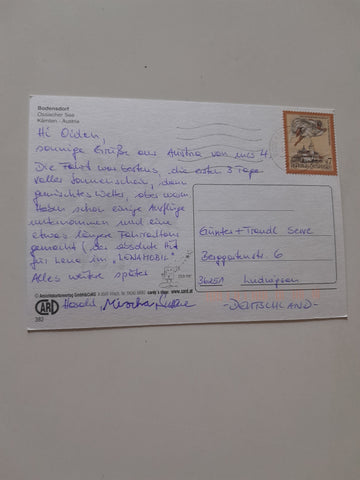 Bodensdorf
Ossiacher See
Kärnten - Austria
Hi Oiden,
sonnige Grüße aus Austria von uns 4.
Die Fahrt war bestens, die ersten 3 Tage
voller Sonnenschein, dann
gemischtes Wetter, aber warm
Haben schon einige Ausflüge
unternommen und eine
etwas längere Fahrradtour
gemacht (der absolute Hit
für Lena im "LENAMOBIL"
Alles weitere später
Günter + Traudl
Berggartenstr. 6
36251 Ludwigsau
- DEUTSCHLAND -
CARD
382
Harald, Mischa,